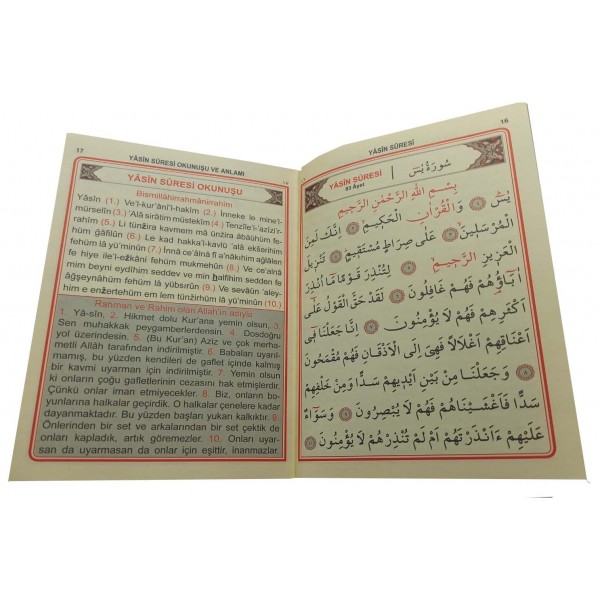 16
YÂSÎN SÛRESİ
YÂSÎN SÛRESİ
83 Âyet
سُورَةُ يٰسٓ
بِسْمِ اللّٰهِ الرَّحْمٰنِ الرَّحٖيمِ
يٰسٓ ﴿١﴾ وَالْقُرْاٰنِ الْحَكٖيمِ ﴿٢﴾ اِنَّكَ لَمِنَ
الْمُرْسَلٖينَ ﴿٣﴾ عَلٰى صِرَاطٍ مُسْتَقٖيمٍ ﴿٤﴾ تَنْزٖيلَ
الْعَزٖيزِ الرَّحٖيمِ ﴿٥﴾ لِتُنْذِرَ قَوْمًا مَٓا اُنْذِرَ
اٰبَٓاؤُ۬هُمْ فَهُمْ غَافِلُونَ ﴿٦﴾ لَقَدْ حَقَّ الْقَوْلُ عَلٰٓى
اَكْثَرِهِمْ فَهُمْ لَا يُؤْمِنُونَ ﴿٧﴾ اِنَّا جَعَلْنَا فٖٓى
اَعْنَاقِهِمْ اَغْلَالًا فَهِىَ اِلَى الْاَذْقَانِ فَهُمْ مُقْمَحُونَ
﴿٨﴾ وَجَعَلْنَا مِنْ بَيْنِ اَيْدٖيهِمْ سَدًّا وَمِنْ خَلْفِهِمْ
سَدًّا فَاَغْشَيْنَاهُمْ فَهُمْ لَا يُبْصِرُونَ ﴿٩﴾ وَسَوَٓاءٌ
عَلَيْهِمْ ءَاَنْذَرْتَهُمْ اَمْ لَمْ تُنْذِرْهُمْ لَا يُؤْمِنُونَ ﴿١٠﴾
17
YÂSÎN SÛRESİ OKUNUŞU VE ANLAMI
YÂSÎN SÛRESİ OKUNUŞU
Bismillâhirrahmânirrahîm
Yâsîn (1.) Ve'l-kur'âni'l-hakîm (2.) İnneke le mine'l-
mürselîn (3.) 'Alâ sirâtim müstekîm (4.) Tenzîle'l-'azîzi'r-
rahîm (5.) Li tünzira kavmem mâ ünzira âbâühüm fe-
hüm ğâfilûn (6.) Le kad hakka'l-kavlü 'alâ ekserihim
fehüm lâ yü'minûn (7.) İnnâ ce'alnâ fî a'nâkıhim ağlâlen
fe hiye ile'l-ezkâni fehüm mukmehûn (8.) Ve ce'alnâ
mim beyni eydîhim seddev ve min halfihim sedden fe
âğşeynâhüm fehüm lâ yübsırûn (9.) Ve sevâün 'aley-
him e enzertehüm em lem tünzirhüm lâ yü'minûn (10.)
Rahman ve Rahim olan Allah'ın adıyla
1. Yâ-sîn, 2. Hikmet dolu Kur'ana yemin olsun, 3.
Sen muhakkak peygamberlerdensin. 4. Dosdoğru
yol üzerindesin. 5. (Bu Kur'an) Aziz ve çok merha-
metli Allâh tarafından indirilmiştir. 6. Babaları uyarıl-
mamış, bu yüzden kendileri de gaflet içinde kalmış
bir kavmi uyarman için indirilmiştir. 7. Yemin olsun
ki onların çoğu gafletlerinin cezasını hak etmişlerdir.
Çünkü onlar iman etmiyecekler. 8. Biz, onların bo-
yunlarına halkalar geçirdik. O halkalar çenelere kadar
dayanmaktadır. Bu yüzden başları yukarı kalkıktır. 9.
Önlerinden bir set ve arkalarından bir set çektik de
onları kapladık, artık göremezler. 10. Onları uyar-
san da uyarmasan da onlar için eşittir, inanmazlar.